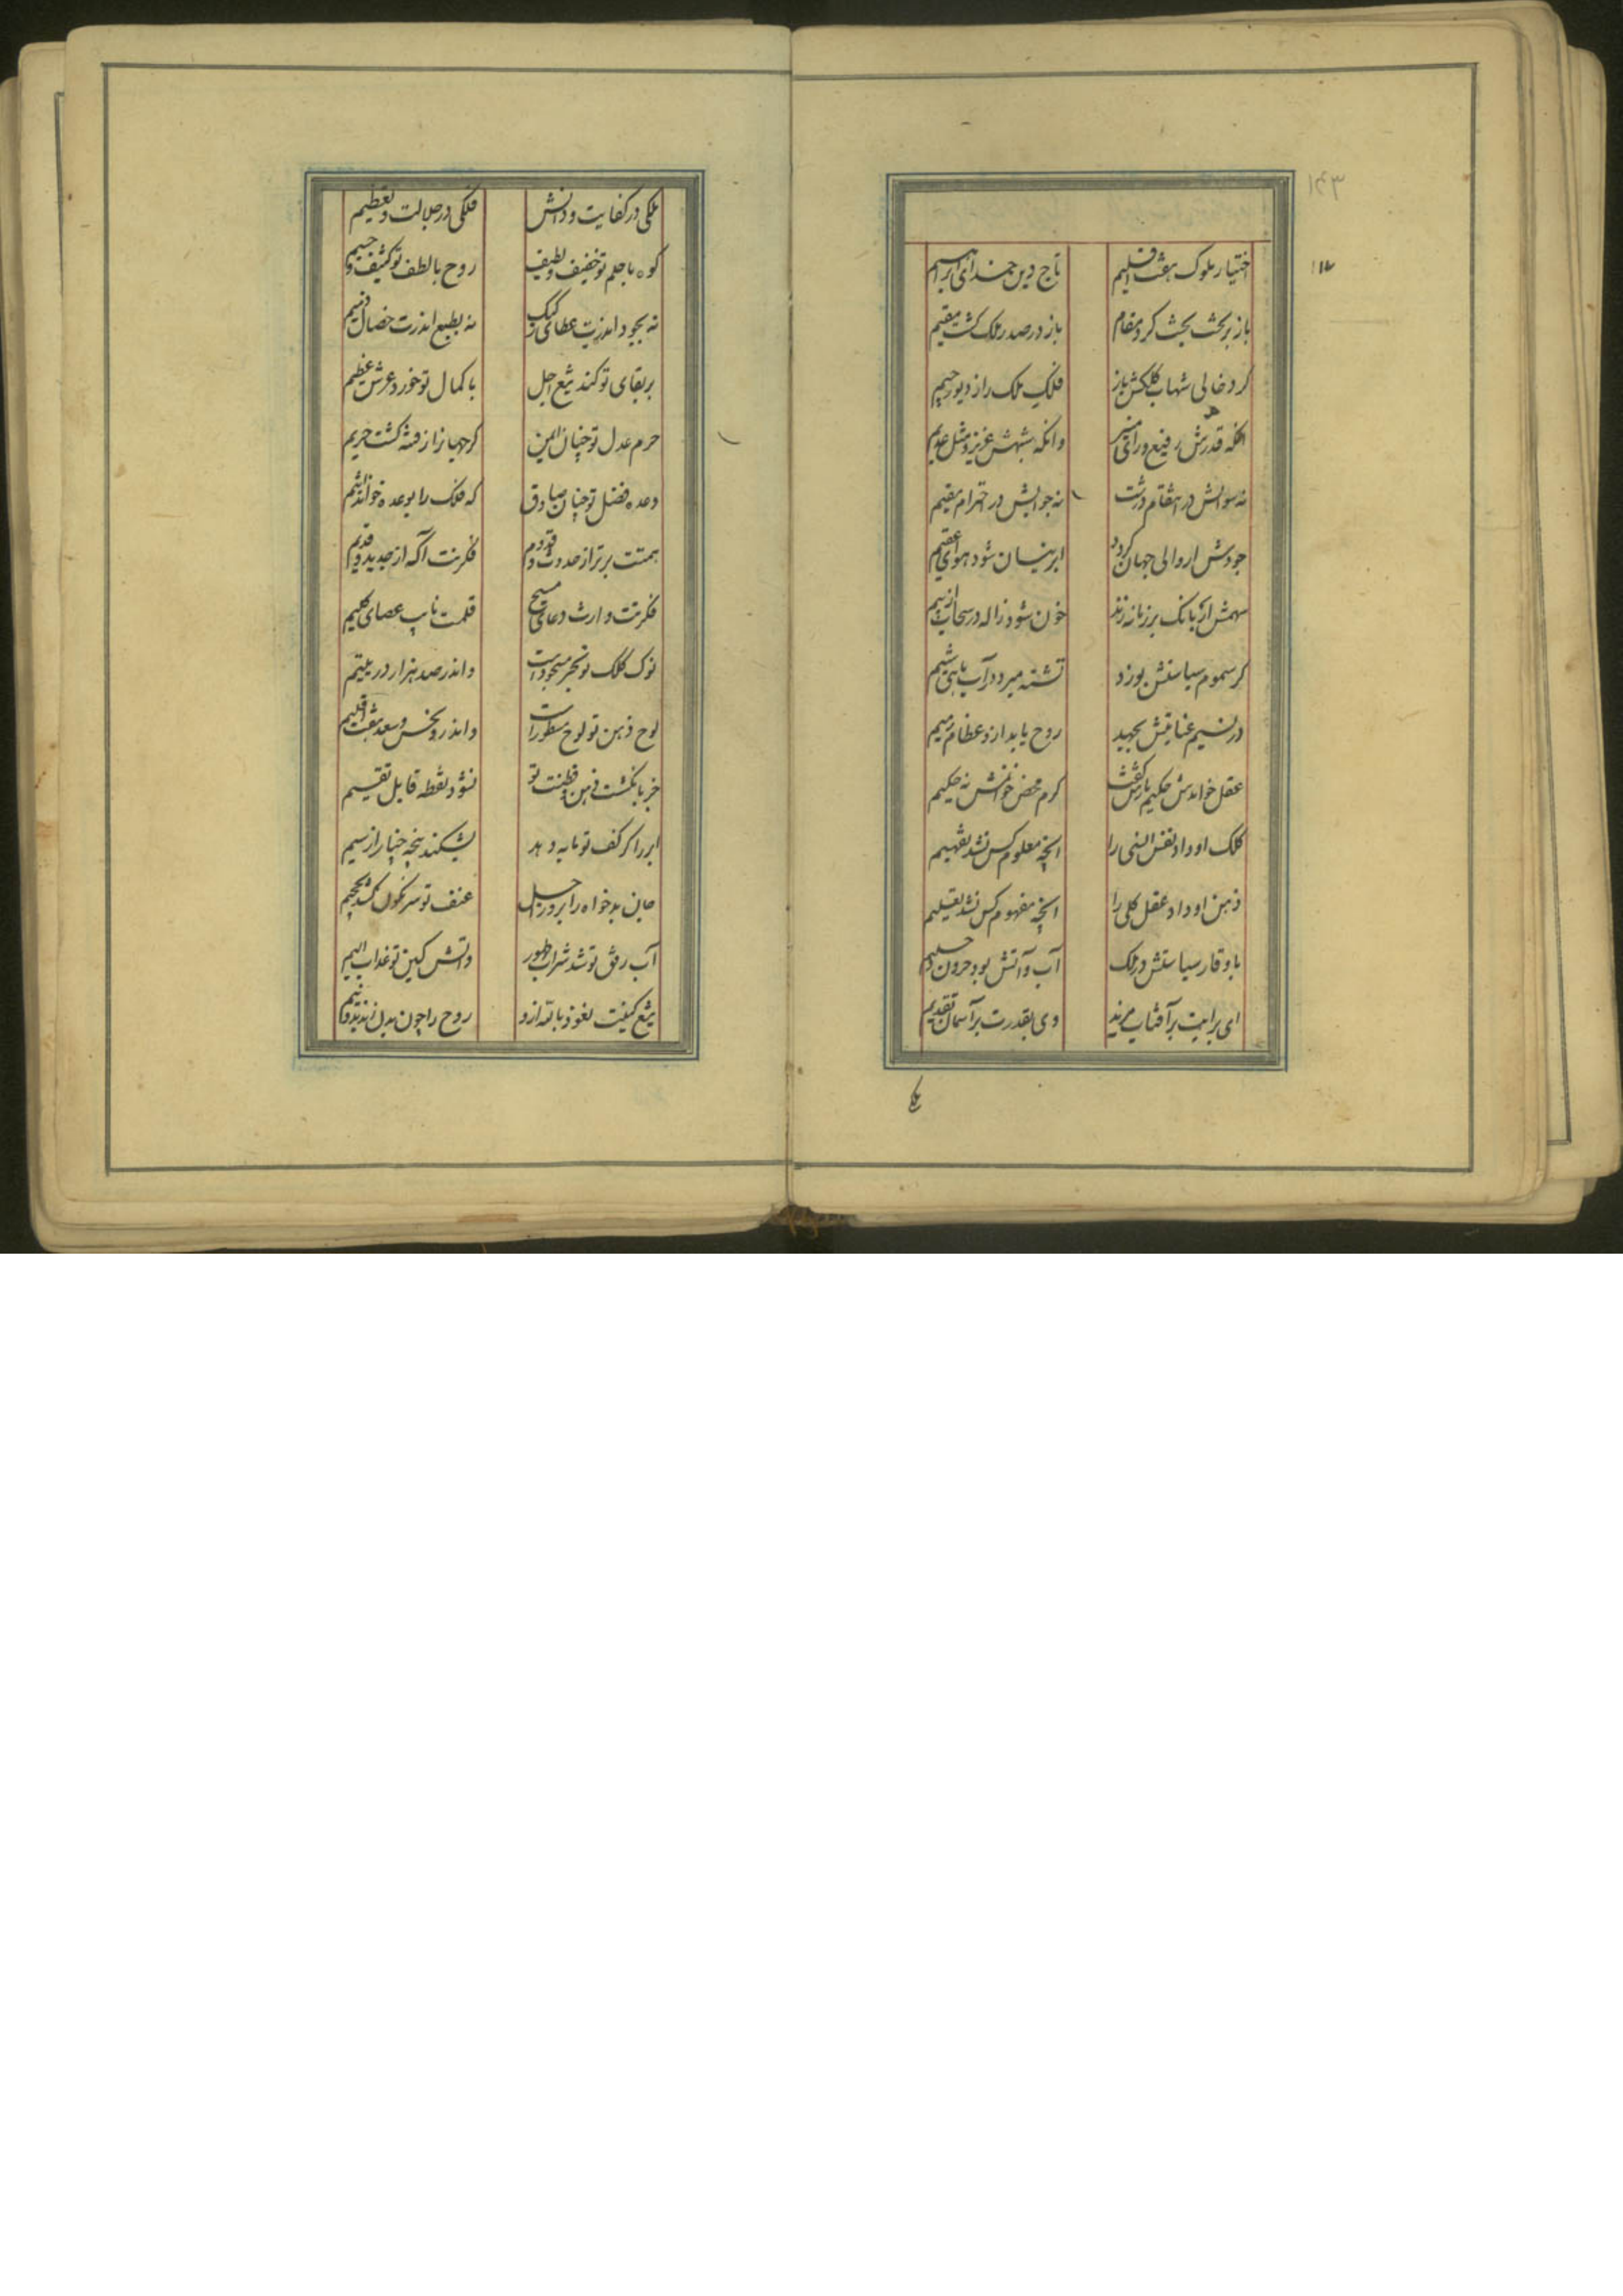 ۱۴۳
اختیار ملوک هفت اقلیم تاج دین خدای ابراهیم
باز بر تخت بخت کرد مقام باز در صدر ملک گشت مقیم
کرد خالی شهاب کلکش باز فلک ملک را ز دیو رجیم
آنکه قدرش رفیع و رای منیر وانکه شبهش عزیز و مثل عدیم
نه سؤالش در انتقام درشت نه جوابش در احترام سقیم
جودش ار والی جهان گردد ابر نیسان شود هوای عقیم
سهمش ار بانگ بر زمانه زند خون شود ژاله در سحاب از بیم
گر سموم سیاستش بوزد تشنه میرد در آب ماهی شیم
ور نسیم عنایتش بجهد روح یابد ازو عظام رمیم
عقل خواندش حکیم باز گفت کرم محض خوانش نه حکیم
کلک او داد نفس انسی را آنچه معلوم کس نشد بفهیم
ذهن او داد عقل کلی را آنچه مفهوم کس نشد بتعلیم
با وقار سیاستش در ملک آب و آتش بود حرون و حلیم
ای برایت بر آفتاب مزید وی بقدرت بر آسمان تقدیم
ملکی
ملکی در کفایت و دانش فلکی در جلالت و تعظیم
کوه با حلم تو خفیف و لطیف روح با لطف تو کثیف و جسیم
نه بجود اندرت عطای رکیک نه بطبع اندرت خصال ذمیم
بر بقای تو کند تیغ اجل با کمال تو خورد عرش عظیم
حرم عدل تو چنان ایمن که جهان را ز فتنه گشت حریم
وعده فضل تو چنان صادق که فلک را بوعده خواند لئیم
همتت برتر از حدوث و قدم فکرتت آگه از جدید و قدیم
فکرتت وارث دعای مسیح قلمت نایب عصای کلیم
نوک کلک تو بحر مسجورست واندر صد هزار در یتیم
لوح ذهن تو لوح مسطورست واندرو نحس و سعد هفت اقلیم
جز بانگشت ذهن و فطنت تو نشود نقطه قابل تقسیم
ابر را گر کف تو مایه دهد بشکند پنجه چنار از سیم
جان بدخواه را بروز اجل عنف تو سرنگون کشد بجحیم
آب رفق تو شد شراب طهور واتش کین تو عذاب الیم
تیغ کینت نعوذ بالله ازو روح را چون بدن زند بدو نیم